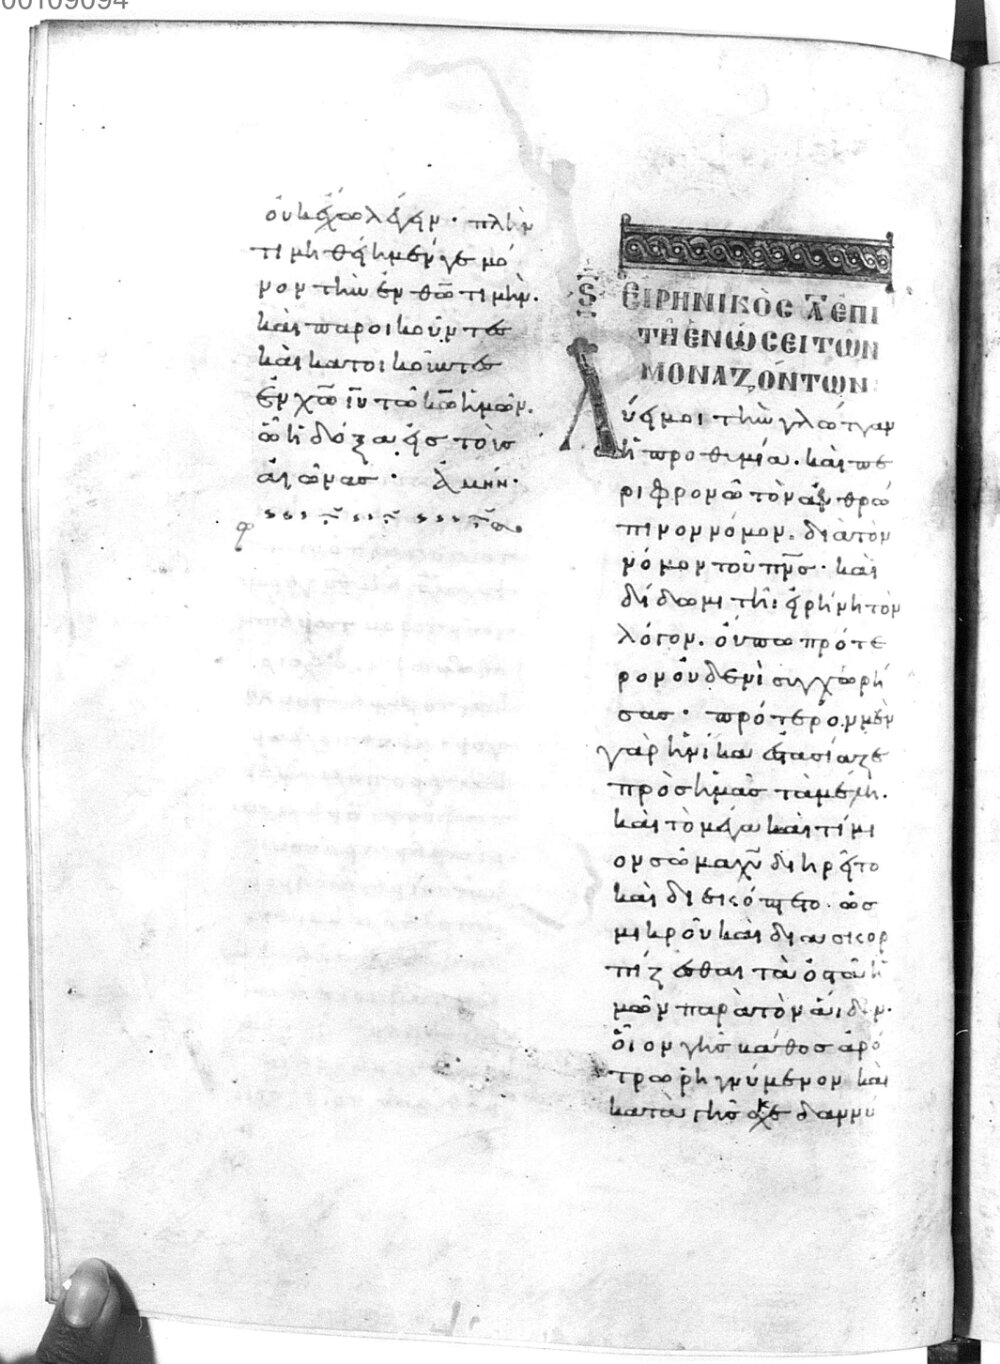 00109094
οὐκ ἔχω λέγειν · πλὴν
τιμηθείημεν γε μό
νον τὴν ἐν θῶ τιμὴν.
καὶ παροικοῦντες
καὶ κατοικοῦντες
ἐν χῶ ιῦ τῶ κῶ ἡμῶν.
ὧ ἡ δόξα εἰς τοὺς
αἰῶνας · ἀμήν·
ΕΙΡΗΝΙΚῸC Α ἘΠΙ
ΤΗ ἘΝΏCΕΙ ΤΩΝ
ΜΟΝΑΖΌΝΤΩΝ:
Λύει μοι τὴν γλῶτταν
ἡ προθυμία. καὶ πε
ριφρονῶ τὸν ἀνθρώ
πινον νόμον. διὰ τὸν
νόμον τοῦ πνς · καὶ
δίδωμι τῆ εἰρήνη τὸν
λόγον. οὔπω πρότε
ρον οὐδενὶ συγχωρή
σας · πρότερον μὲν
γὰρ ἡνίκα ἐστασίαζε
πρὸς ἡμᾶς τὰ μέλη.
καὶ τὸ μέγα καὶ τίμι
ον σῶμα χῦ διηρεῖτο
καὶ διεκόπτετο. ὡς
μικροῦ καὶ διασκορ
πίζεσθαι τὰ ὀστᾶ ἡ
μῶν παρὰ τὸν ἅιδην.
οἷον γῆς πάχος ἀρό
τρω ρηγνύμενον καὶ
κατὰ γῆς σκεδαννύ